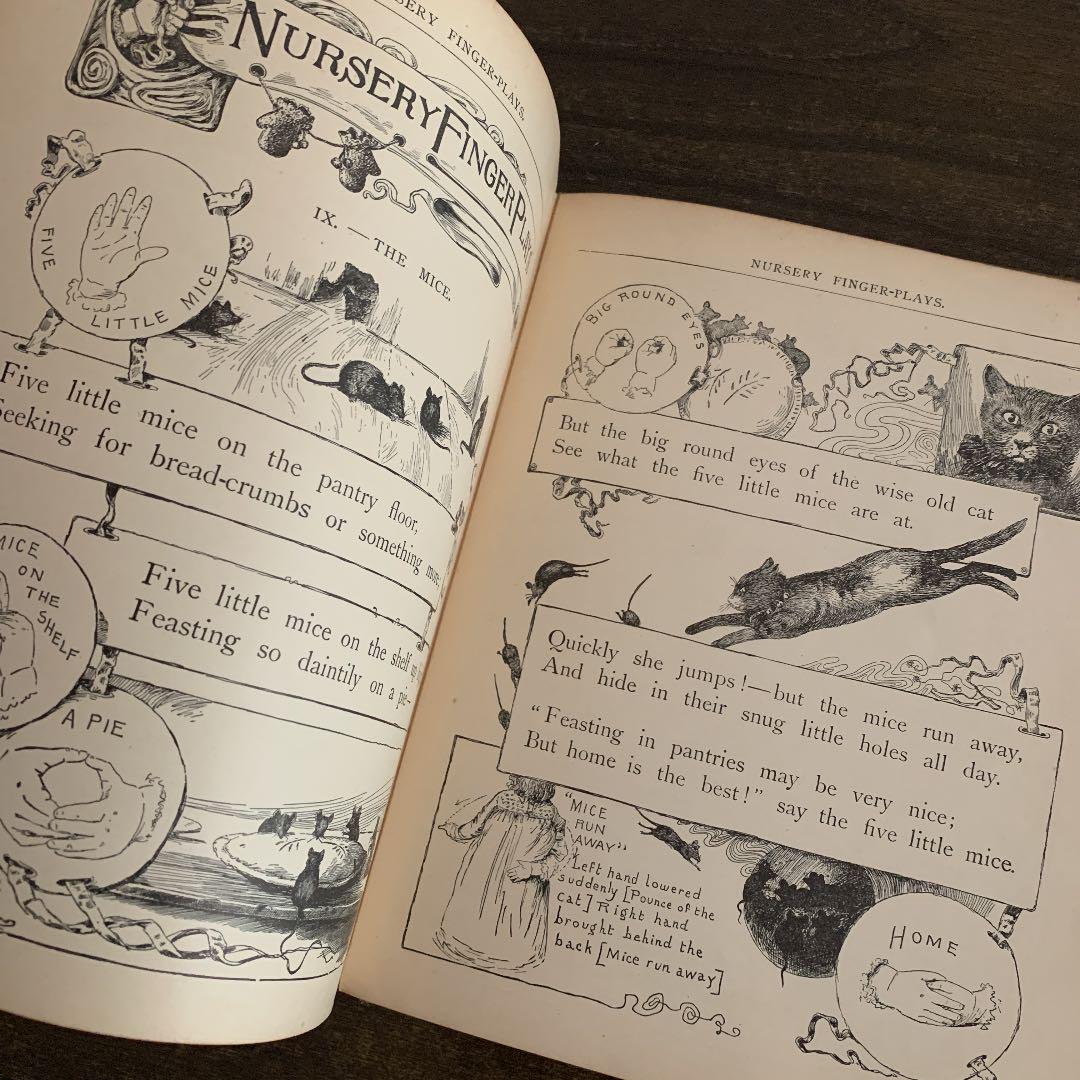 NURSERY FINGER-PLAYS.
NURSERY FINGER
IX. — THE MICE.
FIVE LITTLE MICE
Five little mice on the pantry floor,
Seeking for bread-crumbs or something
MICE
ON
THE
SHELF
Five little mice on the shelf
Feasting so daintily on a pie—
A PIE
NURSERY FINGER-PLAYS.
BIG ROUND EYES
But the big round eyes of the wise old cat
See what the five little mice are at.
Quickly she jumps!—but the mice run away,
And hide in their snug little holes all day.
"Feasting in pantries may be very nice;
But home is the best!" say the five little mice.
"MICE
RUN
AWAY"
Left hand lowered
suddenly [Pounce of the
cat] Right hand
brought behind the
back [Mice run away]
HOME